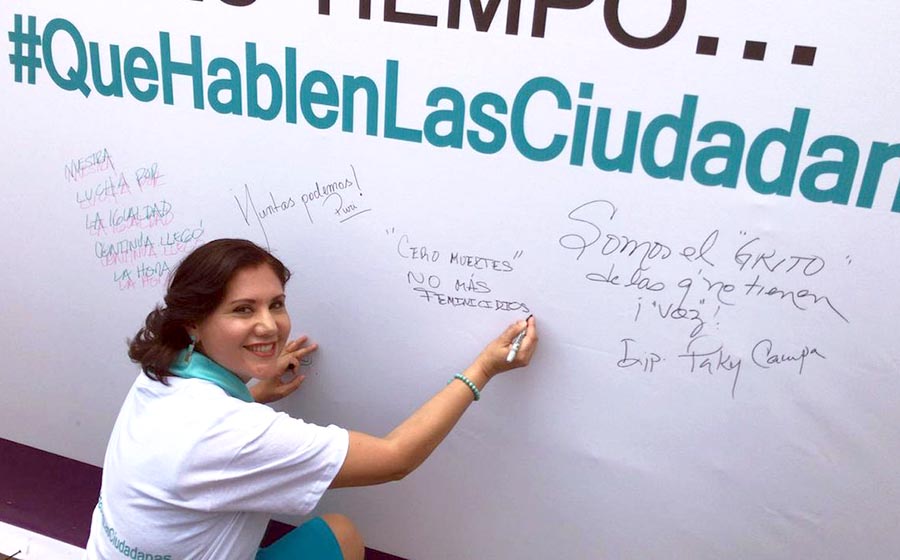 TIEMPO...
#QueHablenLasCiudadanas
NUESTRA
LUCHA POR
LA IGUALDAD
CONTINUA LLEGÓ
LA HORA
Juntas podemos!
Puri
"CERO MUERTES"
NO MÁS
FEMINICIDIOS
Somos el "GRITO"
de las q' ne tienen
¡"voz"!
Dip. Taky Campa
Ciudadanas